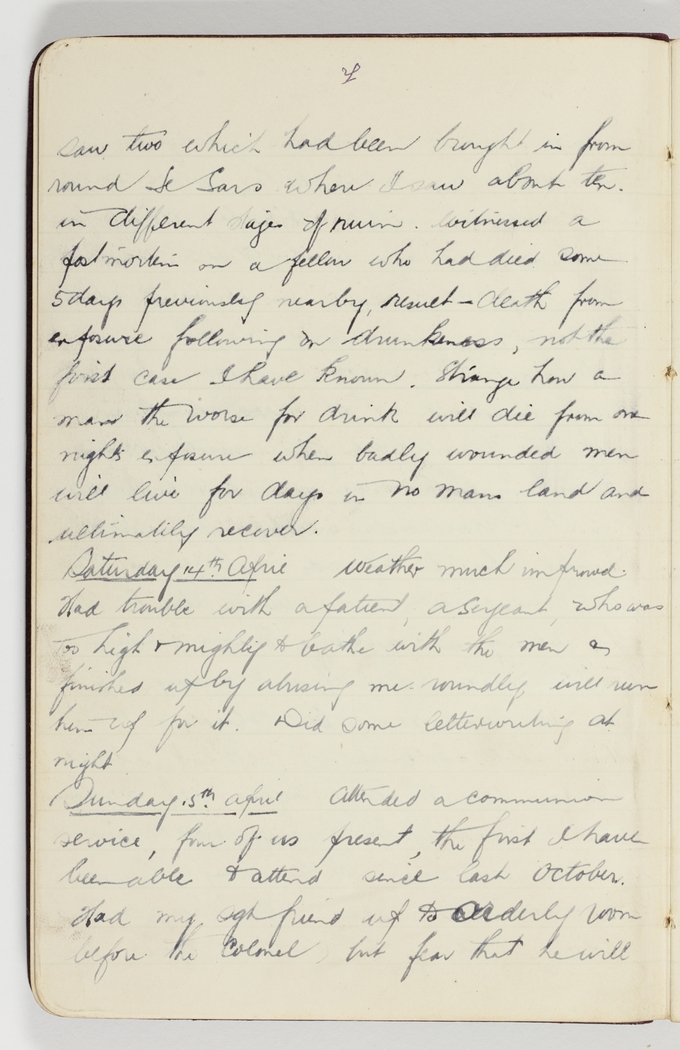 saw two which had been brought in from
round Le Sars where I saw about ten.
in different stages of ruin. Witnessed a
postmortem on a fellow who had died some
5 days previously nearby, result - death from
exposure following on drunkeness, not the
first case I have known. Strange how a
man the worse for drink will die from one
nights exposure when badly wounded men
will live for days in No mans land and
ultimately recover.
Saturday 14th April weather much improved.
Had trouble with a patient, a Sergeant, who was
too high & mighty to bathe with the men &
finished up by abusing me roundly will run
him up for it. Did some letterwriting at
night
Sunday 15th April Attended a communion
service, four of us present, the first I have
been able to attend since last October.
Had my sgt friend up to Orderly room
before the Colonel, but fear that he will